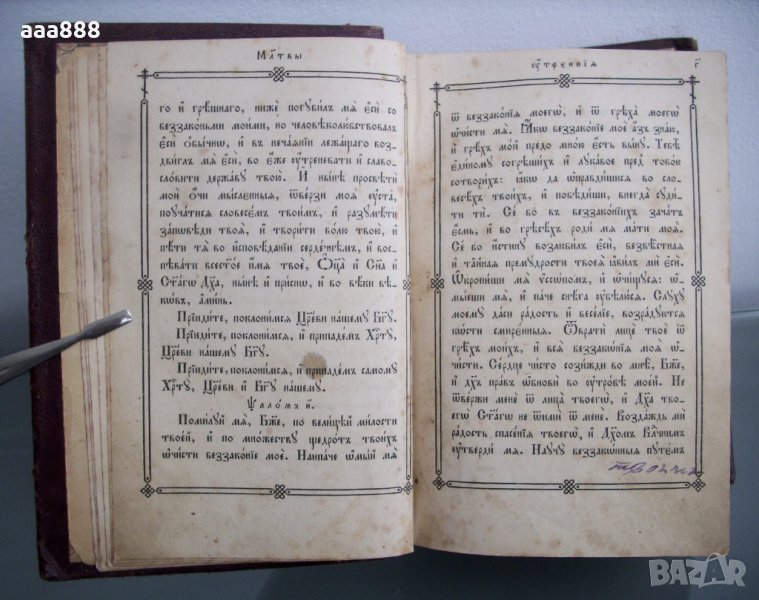 aaa888
Мл҃твы
го и҆ грѣ́шнаго, нижѐ погꙋби́лъ мѧ̀ є҆сѝ со
беззако́ньми мои́ми, но человѣколю́бствовалъ
є҆сѝ ѻ҆бы́чнѡ, и҆ въ неча́ѧнїи лежа́щаго воз-
дви́глъ мѧ̀ є҆сѝ, во є҆́же ᲂу҆́треневати и҆ славо-
сло́вити держа́вꙋ твою̀. И҆ ны́нѣ просвѣтѝ
моѝ ѻ҆́чи мы́слєнныѧ, ѿве́рзи моѧ̑ ᲂу҆ста̀,
поꙋча́тисѧ словесє́мъ твои̑мъ, и҆ разꙋмѣ́ти
за́пѡвѣди твоѧ̑, и҆ твори́ти во́лю твою̀, и҆
пѣ́ти тѧ̀ во и҆сповѣ́данїи серде́чнѣмъ, и҆ вос-
пѣва́ти всест҃о́е и҆́мѧ твоѐ, Ѻ҆ц҃а̀ и҆ Сн҃а и҆
Ст҃а́гѡ Дх҃а, ны́нѣ и҆ при́снѡ, и҆ во вѣ́ки вѣ-
кѡ́въ, а҆ми́нь.
Прїиди́те, поклони́мсѧ Цр҃е́ви на́шемꙋ Бг҃ꙋ.
Прїиди́те, поклони́мсѧ, и҆ припаде́мъ Хрⷭ҇тꙋ̀,
Цр҃е́ви на́шемꙋ Бг҃ꙋ.
Прїиди́те, поклони́мсѧ, и҆ припаде́мъ самомꙋ̀
Хрⷭ҇тꙋ̀, Цр҃е́ви и҆ Бг҃ꙋ на́шемꙋ.
Ѱало́мъ н҃.
Поми́лꙋй мѧ̀, Бж҃е, по вели́цѣй ми́лости
твое́й, и҆ по мно́жествꙋ щедро́тъ твои́хъ
ѡ҆чи́сти беззако́нїе моѐ. Наипа́че ѡ҆мы́й мѧ̀
ᲂу҆́трєннїѧ
г҃
ѿ беззако́нїѧ моегѡ̀, и҆ ѿ грѣха̀ моегѡ̀
ѡ҆чи́сти мѧ̀. Ꙗ҆́кѡ беззако́нїе моѐ а҆́зъ зна́ю,
и҆ грѣ́хъ мо́й предо мно́ю є҆́сть вы́нꙋ. Тебѣ̀
є҆ди́номꙋ согрѣши́хъ и҆ лꙋка́вое пред̾ тобо́ю
сотвори́хъ: ꙗ҆́кѡ да ѡ҆правди́шисѧ во сло-
весѣ́хъ твои́хъ, и҆ побѣди́ши, внегда̀ сꙋди́-
ти тѝ. Се́ бо въ беззако́нїихъ зача́тъ
є҆́смь, и҆ во грѣсѣ́хъ родѝ мѧ̀ ма́ти моѧ̀.
Се́ бо и҆́стинꙋ возлюби́лъ є҆сѝ, безвѣ́стнаѧ
и҆ та̑йнаѧ премꙋ́дрости твоеѧ̀ ꙗ҆ви́лъ мѝ є҆сѝ.
Ѡ҆кропи́ши мѧ̀ ѵ҆ссѡ́помъ, и҆ ѡ҆чи́щꙋсѧ: ѡ҆-
мы́еши мѧ̀, и҆ па́че снѣ́га ᲂу҆бѣлю́сѧ. Слꙋ́хꙋ
моемꙋ̀ да́си ра́дость и҆ весе́лїе, возра́дꙋютсѧ
кѡ́сти смирє́нныѧ. Ѿвратѝ лицѐ твоѐ ѿ
грѣ̑хъ мои́хъ, и҆ всѧ̑ беззакѡ́нїѧ моѧ̑ ѡ҆-
чи́сти. Се́рдце чи́сто сози́жди во мнѣ̀, Бж҃е,
и҆ дх҃ъ пра́въ ѡ҆бновѝ во ᲂу҆тро́бѣ мое́й. Не
ѿве́ржи менѐ ѿ лица̀ твоегѡ̀, и҆ Дх҃а твоѐ-
гѡ̀ Ст҃а́гѡ не ѿимѝ ѿ менѐ. Возда́ждь мѝ
ра́дость спасе́нїѧ твоегѡ̀, и҆ Дх҃омъ Влⷣчнимъ
ᲂу҆твердѝ мѧ̀. Наꙋчꙋ̀ беззакѡ́нныѧ пꙋтє́мъ
BAZAR